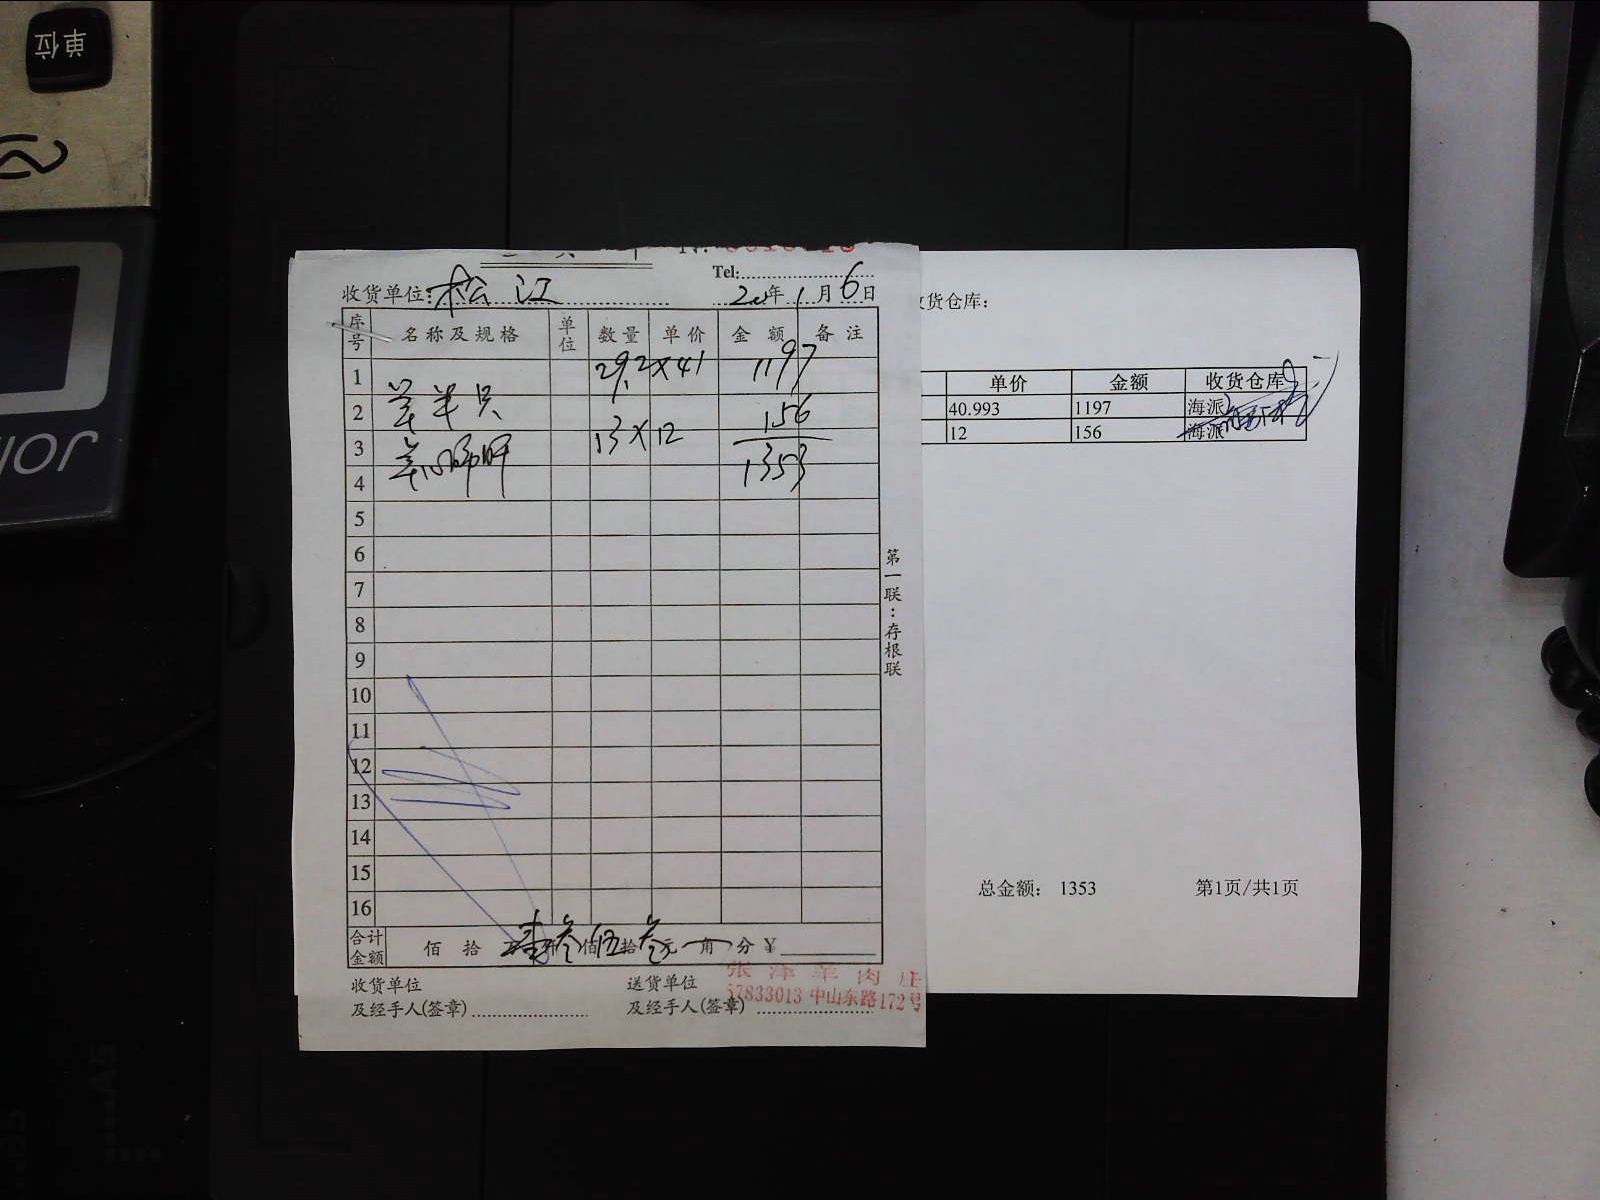 单位
JOI
Tel:
收货单位:松江 20年1月6日
序号 名称及规格 单位 数量 单价 金额 备注
1 29.2×41 1197
2 羊半只 156
3 羊心肺肝 13×12
4 1353
5
6
7
8
9
10
11
12
13
14
15
16
合计金额 佰 拾 万壹仟叁佰伍拾叁元 角 分 ¥
收货单位
及经手人(签章)
送货单位
及经手人(签章)
张泽羊肉庄
57833013 中山东路172号
第一联:存根联
货仓库:
单价 金额 收货仓库
40.993 1197 海派
12 156 海派
总金额: 1353 第1页/共1页